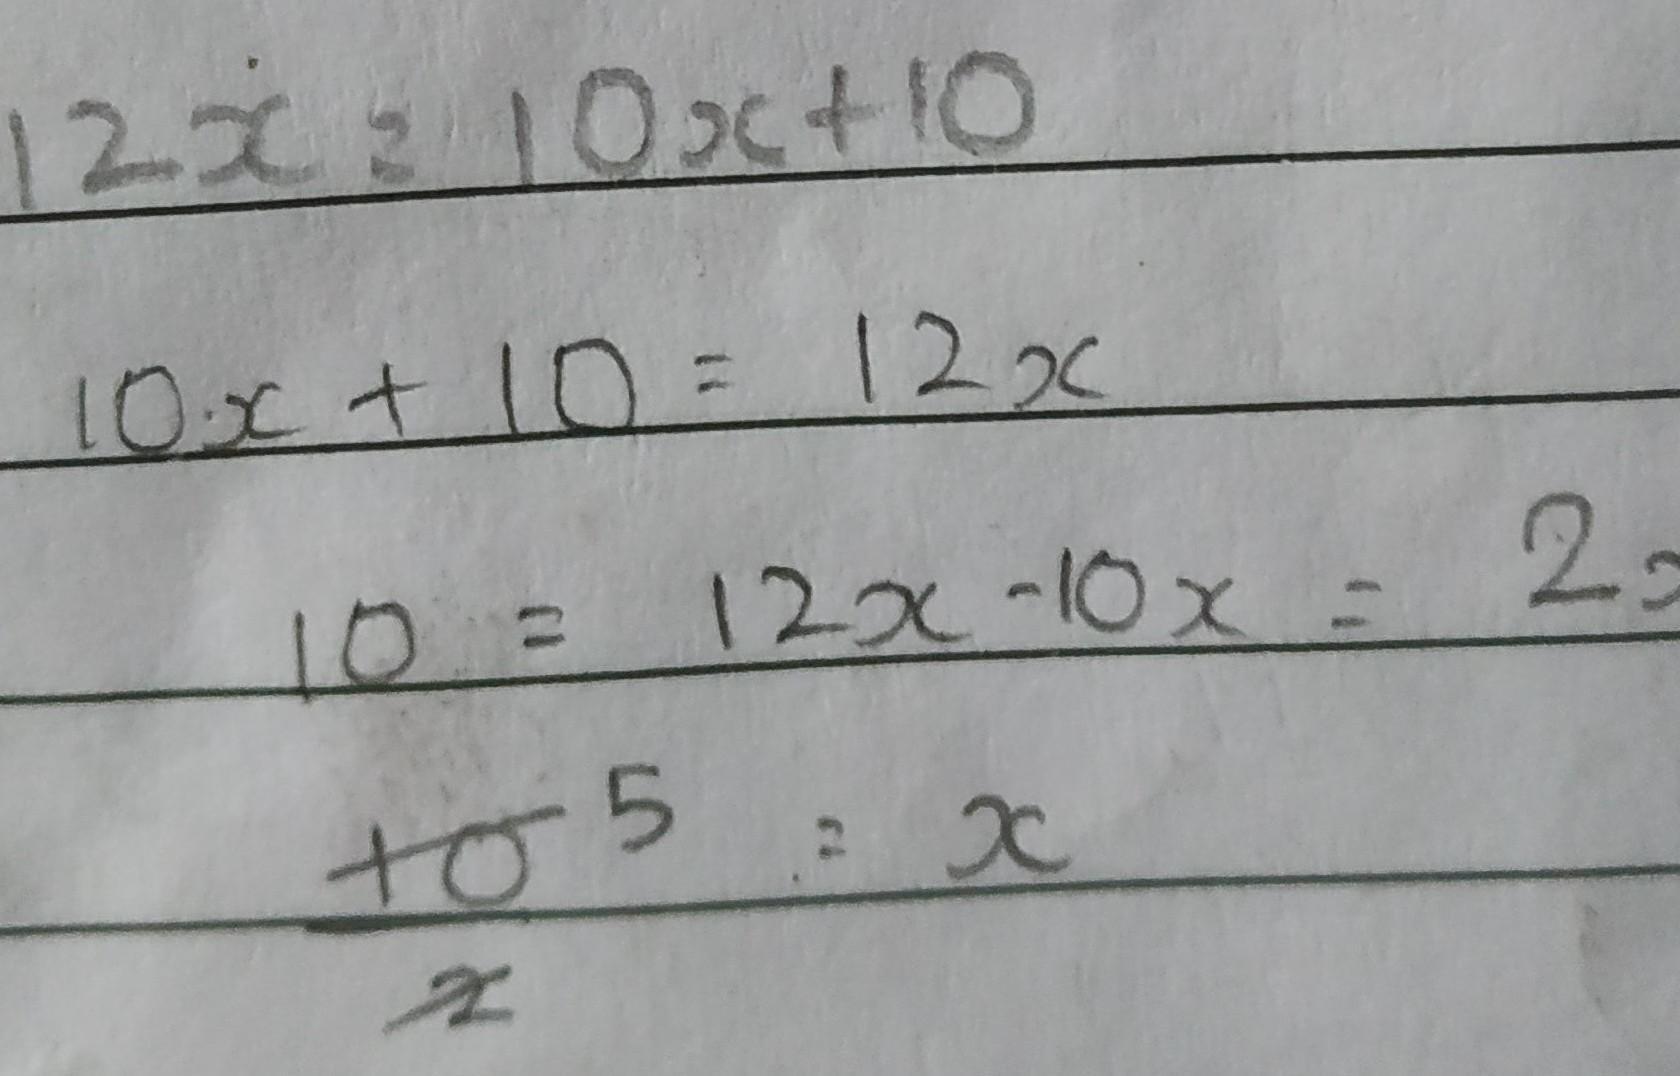 12x = 10x + 10
10x + 10 = 12x
10 = 12x - 10x = 2x
10 5 = x
2